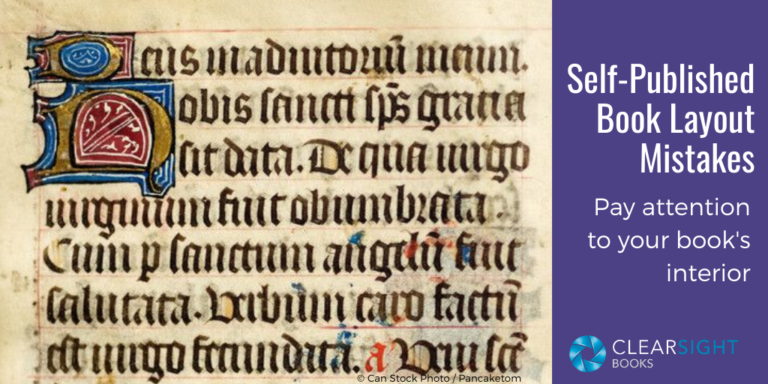 Deus in adiutoriū meum.
Nobis sancti sp̄s gratia
sit data. De qua uirgo
uirginum fuit obumbrata.
Cum p̱ sanctum angelū fuit
salutata. Verbum caro factū
est uirgo fecundata. a Veni scē
© Can Stock Photo / Pancaketom
Self-Published
Book Layout
Mistakes
Pay attention
to your book's
interior
CLEARSIGHT
BOOKS